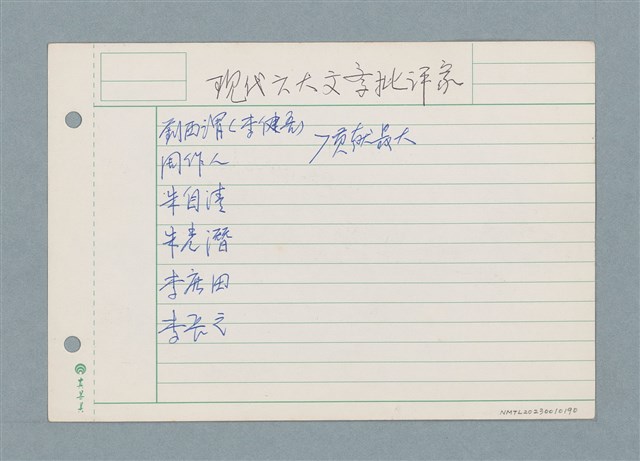 现代六大文学批评家
劉西渭(李健吾)
>贡献最大
周作人
朱自清
朱光潛
李广田
李长之
NMTL20230010190